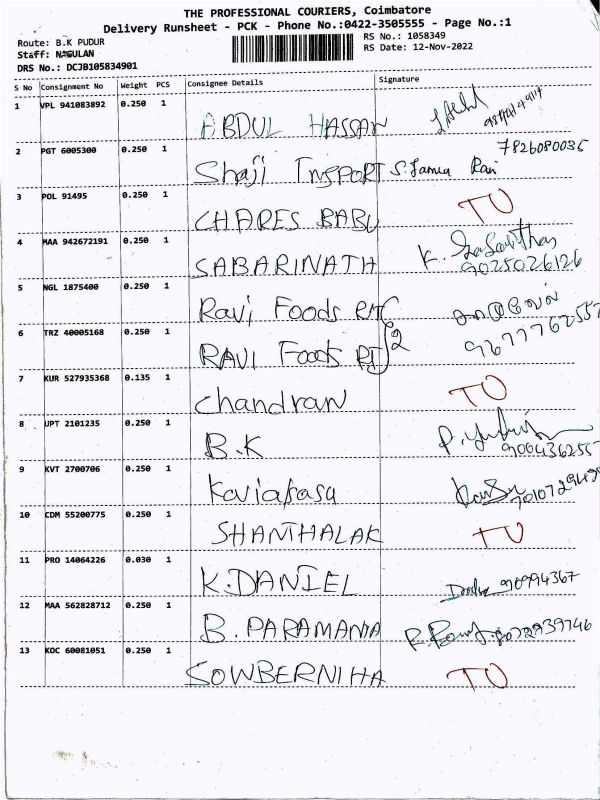 THE PROFESSIONAL COURIERS, Coimbatore
Delivery Runsheet - PCK - Phone No.:0422-3505555 - Page No.:1
Route: B.K PUDUR
RS No.: 1058349
Staff: NAGULAN
RS Date: 12-Nov-2022
DRS No.: DCJB105834901
S No Consignment No Weight PCS Consignee Details Signature
1 VPL 941083892 0.250 1 ABDUL HASSAN
2 PGT 6005300 0.250 1 Shaji TNSPORT S. Rani 7826080035
3 POL 91495 0.250 1 CHARES BABU TO
4 MAA 942672191 0.250 1 SABARINATH K. 9025026126
5 NGL 1875400 0.250 1 Ravi Foods
6 TRZ 40005168 0.250 1 RAVI Foods 2 9677762557
7 KUR 527935368 0.135 1 chandran TO
8 UPT 2101235 0.250 1 B.K
9 KVT 2700706 0.250 1
10 CDM 55200775 0.250 1 SHANTHALAK TO
11 PRO 14064226 0.030 1 K.DANIEL
12 MAA 562828712 0.250 1 B. PARAMANIA
13 KOC 60081051 0.250 1 SOWBERNIHA TO